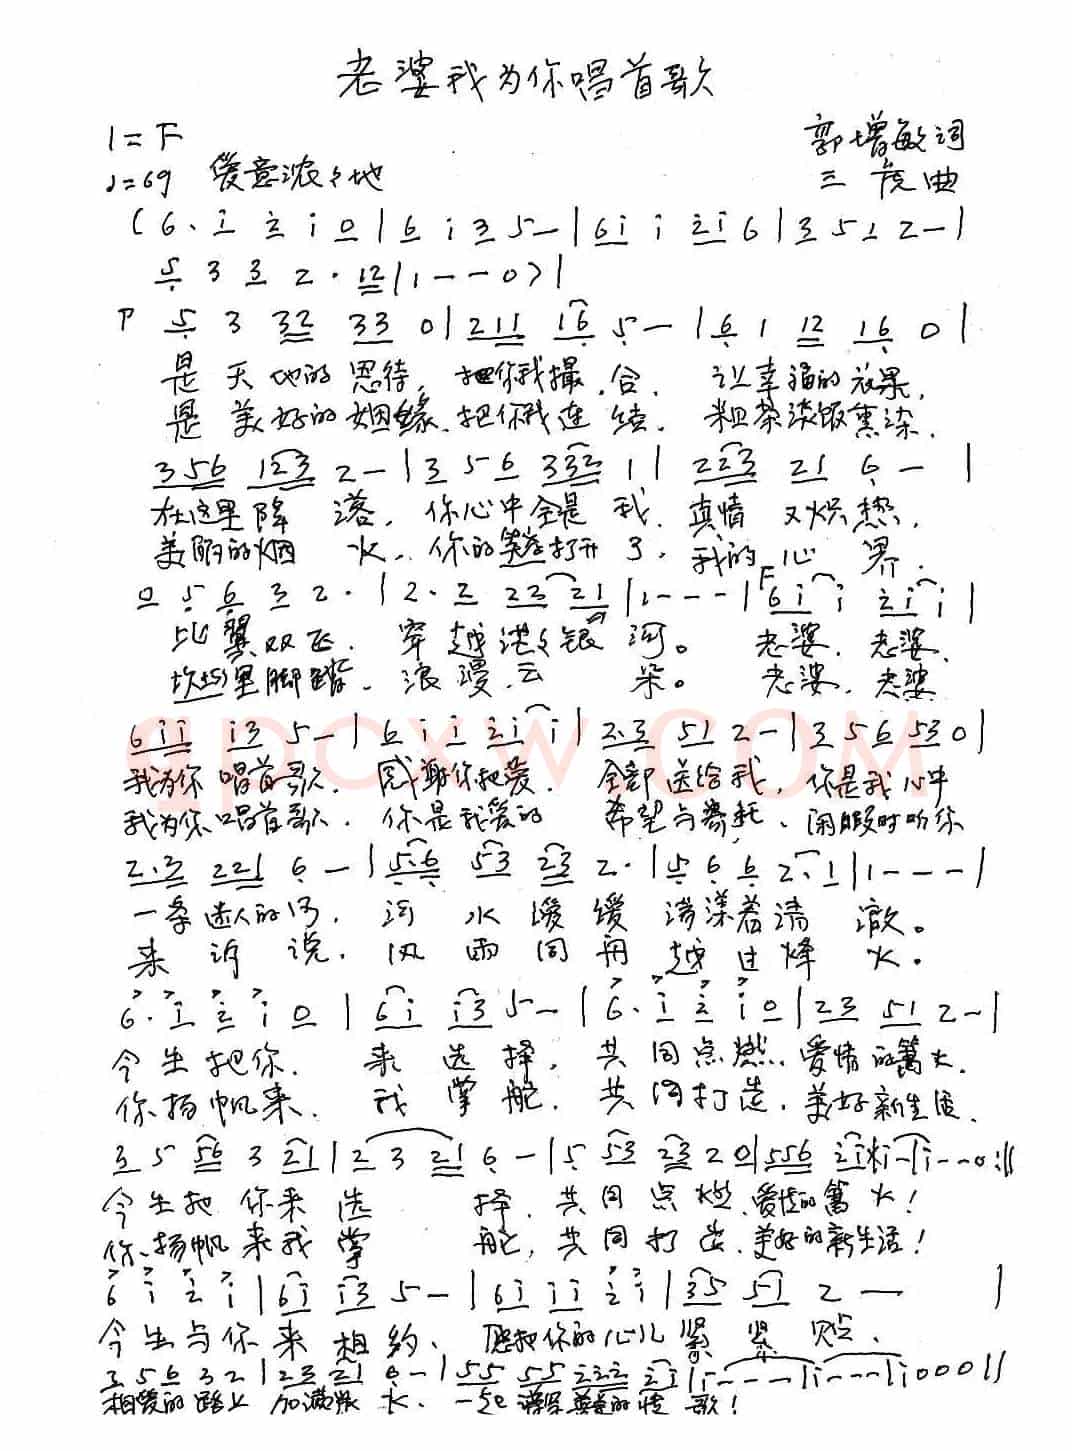 老婆我为你唱首歌
1=F 郭增敏词
♩=69 爱意浓々地 三虎曲
(6. i 2 i 0 | 6 i 3 5 - | 6 i i 2 i 6 | 3 5 1 2 - |
5 3 3 2 . 1 2 | 1 - - - 0 ) |
P 5 3 3 2 3 3 0 | 2 1 1 1 6 5 - | 6 1 1 2 1 6 0 |
是天地的恩待,把你我撮合.让幸福的效果,
是美好的姻缘.把你我连续.粗茶淡饭熏染.
3 5 6 1 2 3 2 - | 3 5 6 3 3 2 1 | 2 2 3 2 1 6 - |
在这里降落.你心中全是我.真情又炽热,
美丽的烟火.你的笑容打开了.我的心界.
0 5 6 3 2 . | 2 . 2 2 3 2 1 | 1 - - - | F 6 i i 2 i i |
比翼双飞.穿越茫々银河。老婆.老婆.
坎坷里脚踏.浪漫云朵。老婆.老婆
qpcxw.com
6 i i i 3 5 - | 6 i i 2 i i | 2.3 5 1 2 - | 3 5 6 5 3 0 |
我为你唱首歌.感谢你把爱.全部送给我,你是我心中
我为你唱首歌.你是我爱的希望与寄托.闲暇时听你
2.3 2 2 1 6 - | 5.6 5 3 2 3 2 . | 5 6 6 2.1 | 1 - - - |
一条迷人的河,河水缓缓荡漾着清澈。
来诉说.风雨同舟越过烽火。
6 . i 2 i 0 | 6 i i 3 5 - | 6 . i 2 i 0 | 2 3 5 1 2 - |
今生把你.来选择.共同点燃.爱情的篝火.
你扬帆来.我掌舵.共同打造.美好新生活.
3 5 5 6 3 2 1 | 2 3 2 1 6 - | 5 5 3 2 3 2 0 | 5 5 6 2 i i - | i - - 0 :||
今生把你来选择.共同点燃.爱情的篝火!
你扬帆来我掌舵,共同打造.美好的新生活!
6 i 2 i | 6 i i 3 5 - | 6 i i i 2 i | 3 5 5 1 2 - |
今生与你来相约、愿把你的心儿紧紧贴.
3 5 6 3 2 | 2 3 2 1 6 - | 5 5 5 5 2 2 2 2 i | i - - - | i - - - | i 0 0 0 ||
相爱的路上加满浆水、一起谱写美的情歌!